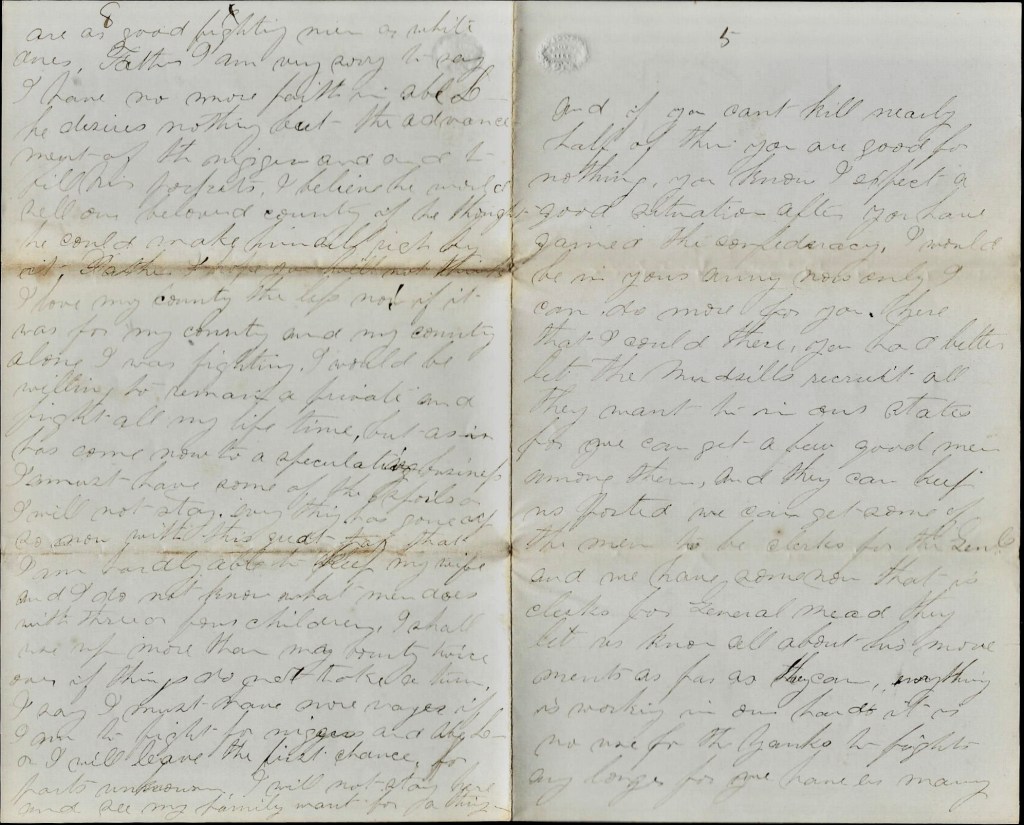 8
are as good fighting men as white
ones, Father I am very sorry to say
I have no more faith in abe L
he desires nothing but the advance
ment of the nigger and and to
fill his pockets, I believe he would
sell our beloved county if he thought
he could make himself rich by
it, Father I hope you will not think
I love my county the less now if it
was for my county and my county
alone I was fighting, I would be
willing to remain a private and
fight all my life time, but as it
has come now to a speculating business
I must have some of the spoils or
I will not stay, every thing has gone up
so now with this great that
I am hardly able to keep my wife
and I do not know what men does
with three or four children, I shall
use up more than my bounty twice
over if things do not take a turn,
I say I must have more wages if
I am to fight for niggers and
or I will leave the first chance, for
parts unknown, I will not stay here
and see my family want for
5
and if you cant kill nearly
half of them you are good for
nothing, you know I expect a
good situation after you have
gained the confederacy, I would
be in your army now only I
can do more for you here
that I could there, you had better
let the Mudsills recruit all
they want to in our states
for we can get a few good men
among them, and they can keep
us posted we can get some of
the men to be clerks for the Genl
and we have some now that is
clerks for General Mead they
let us know all about his move
ments as far as they can, everything
is working in our hands it is
no use for the Yanks to fight
any longer for we have as many